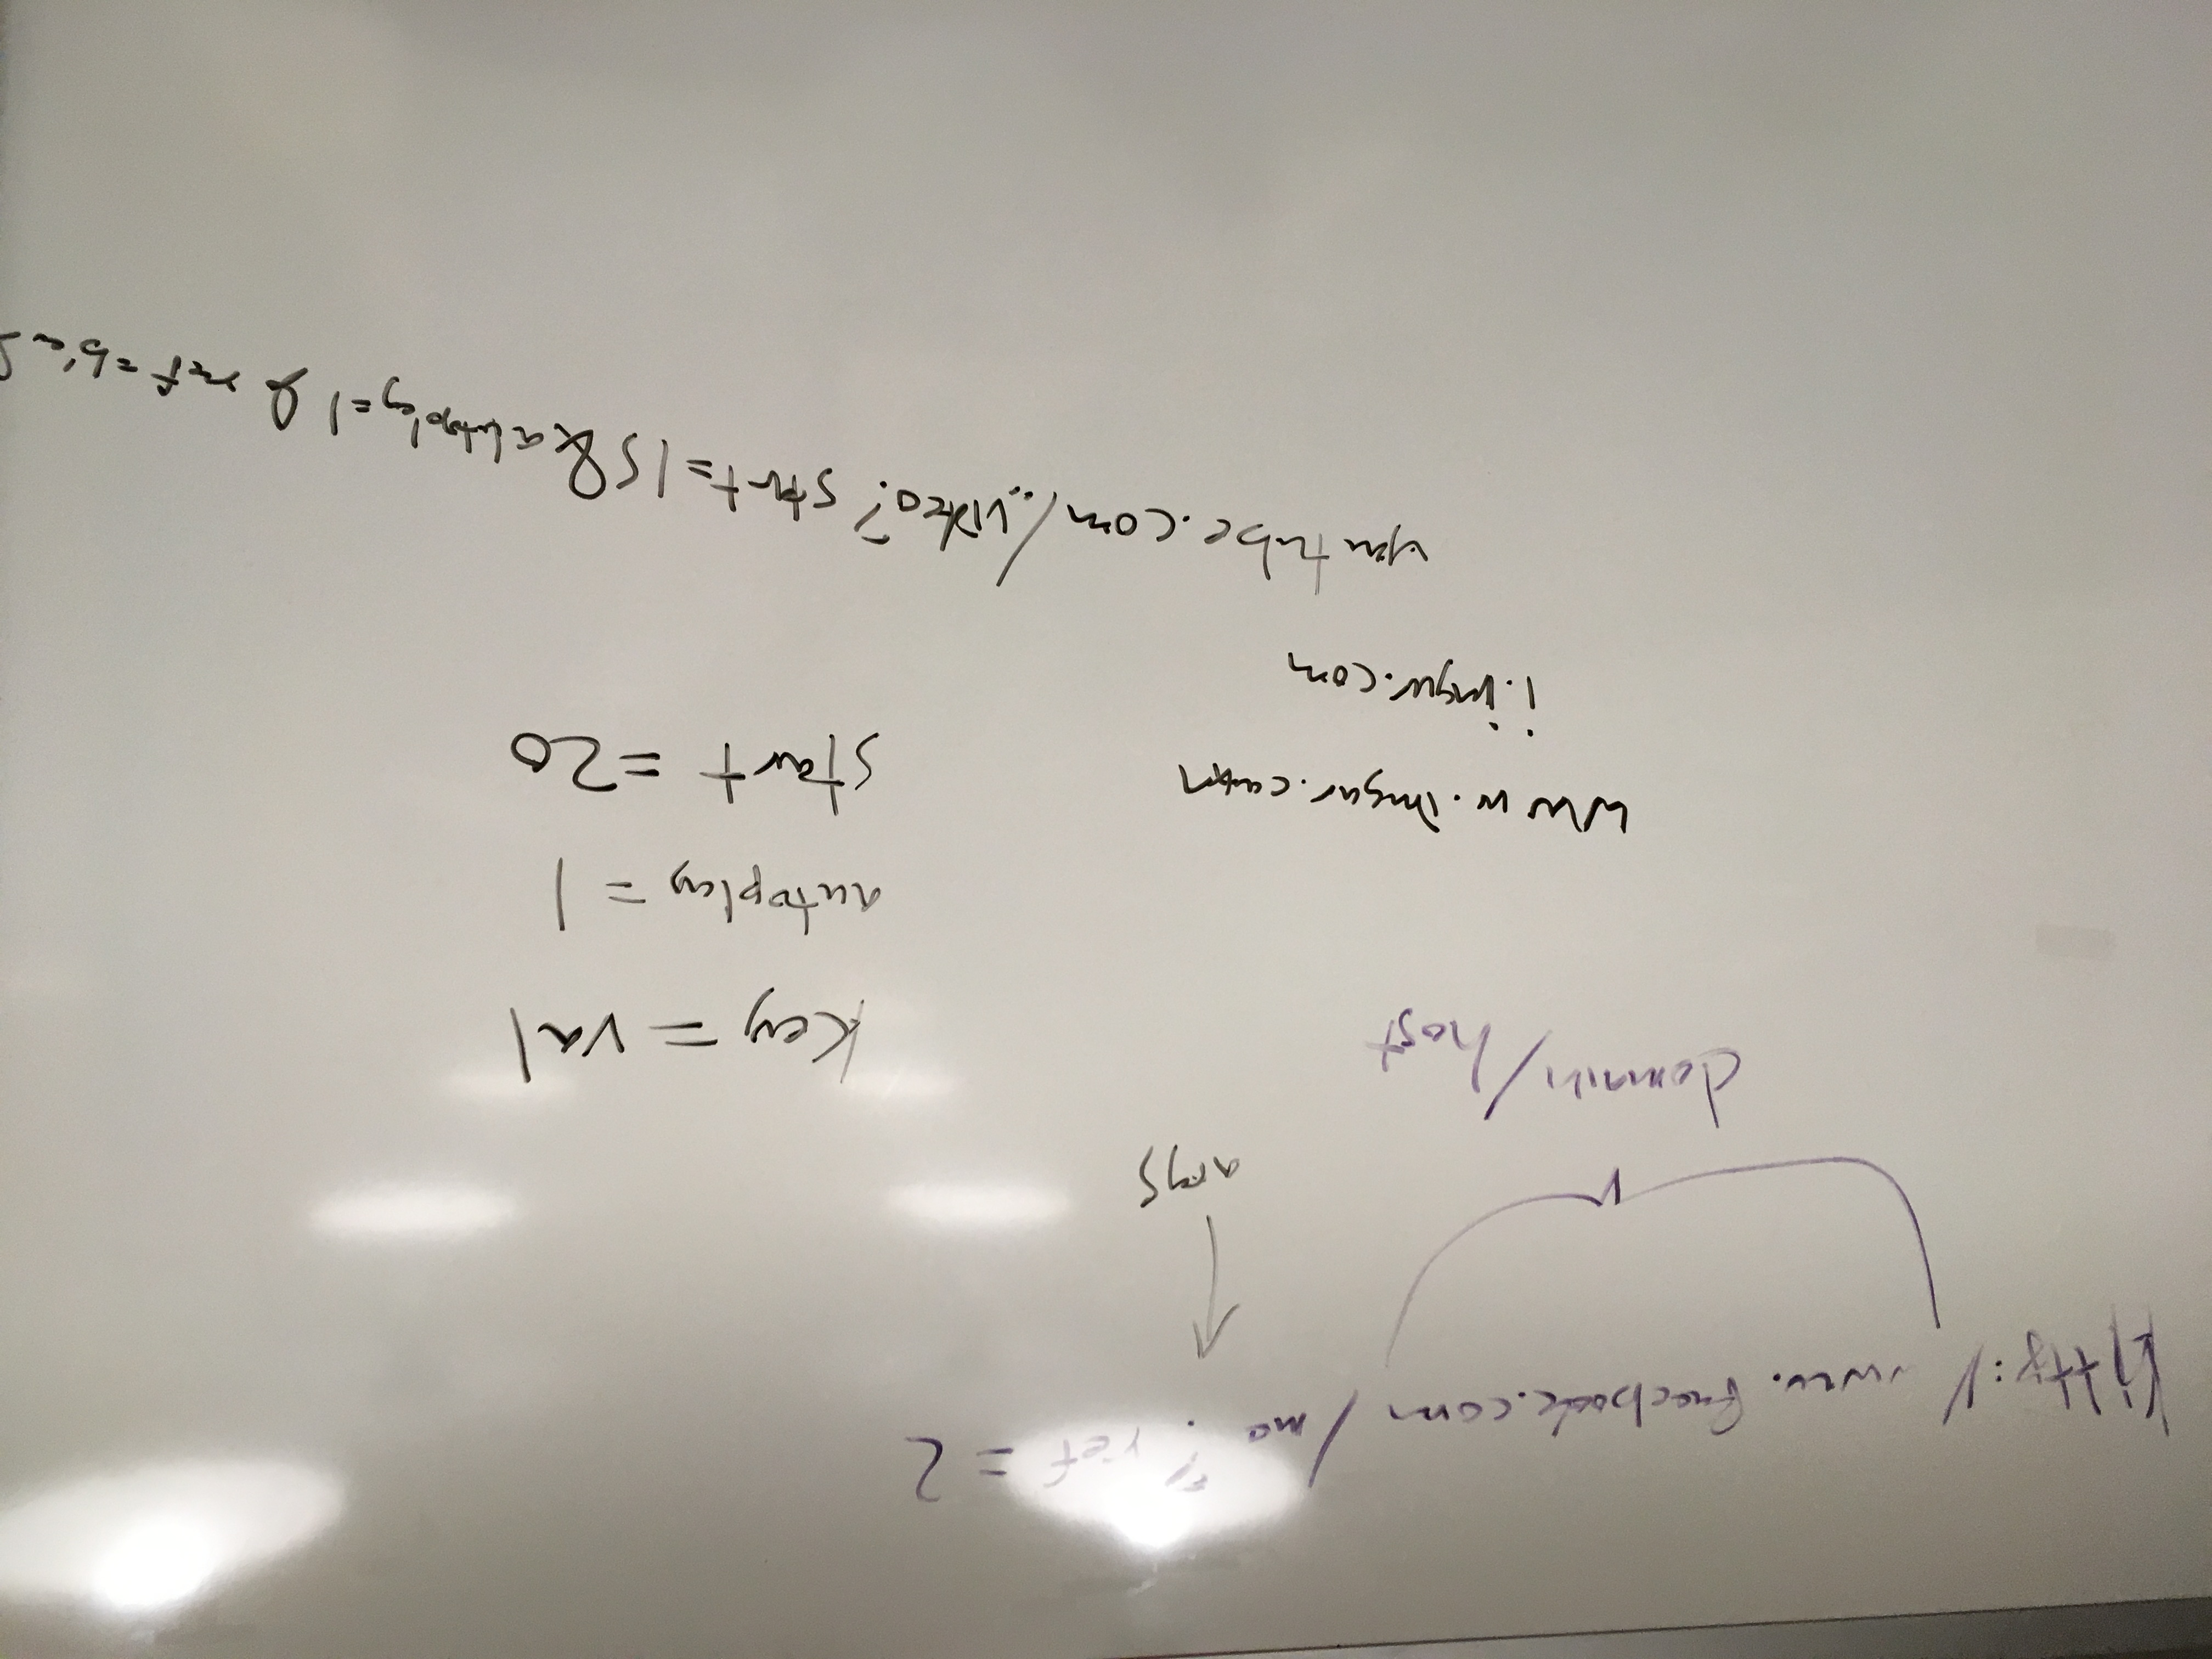 http://www.facebook.com/me?ref=2
args
domain/host
key = val
autoplay = 1
start = 20
www.imgur.com
i.imgur.com
youtube.com/..video?start=15&autoplay=1&ref=